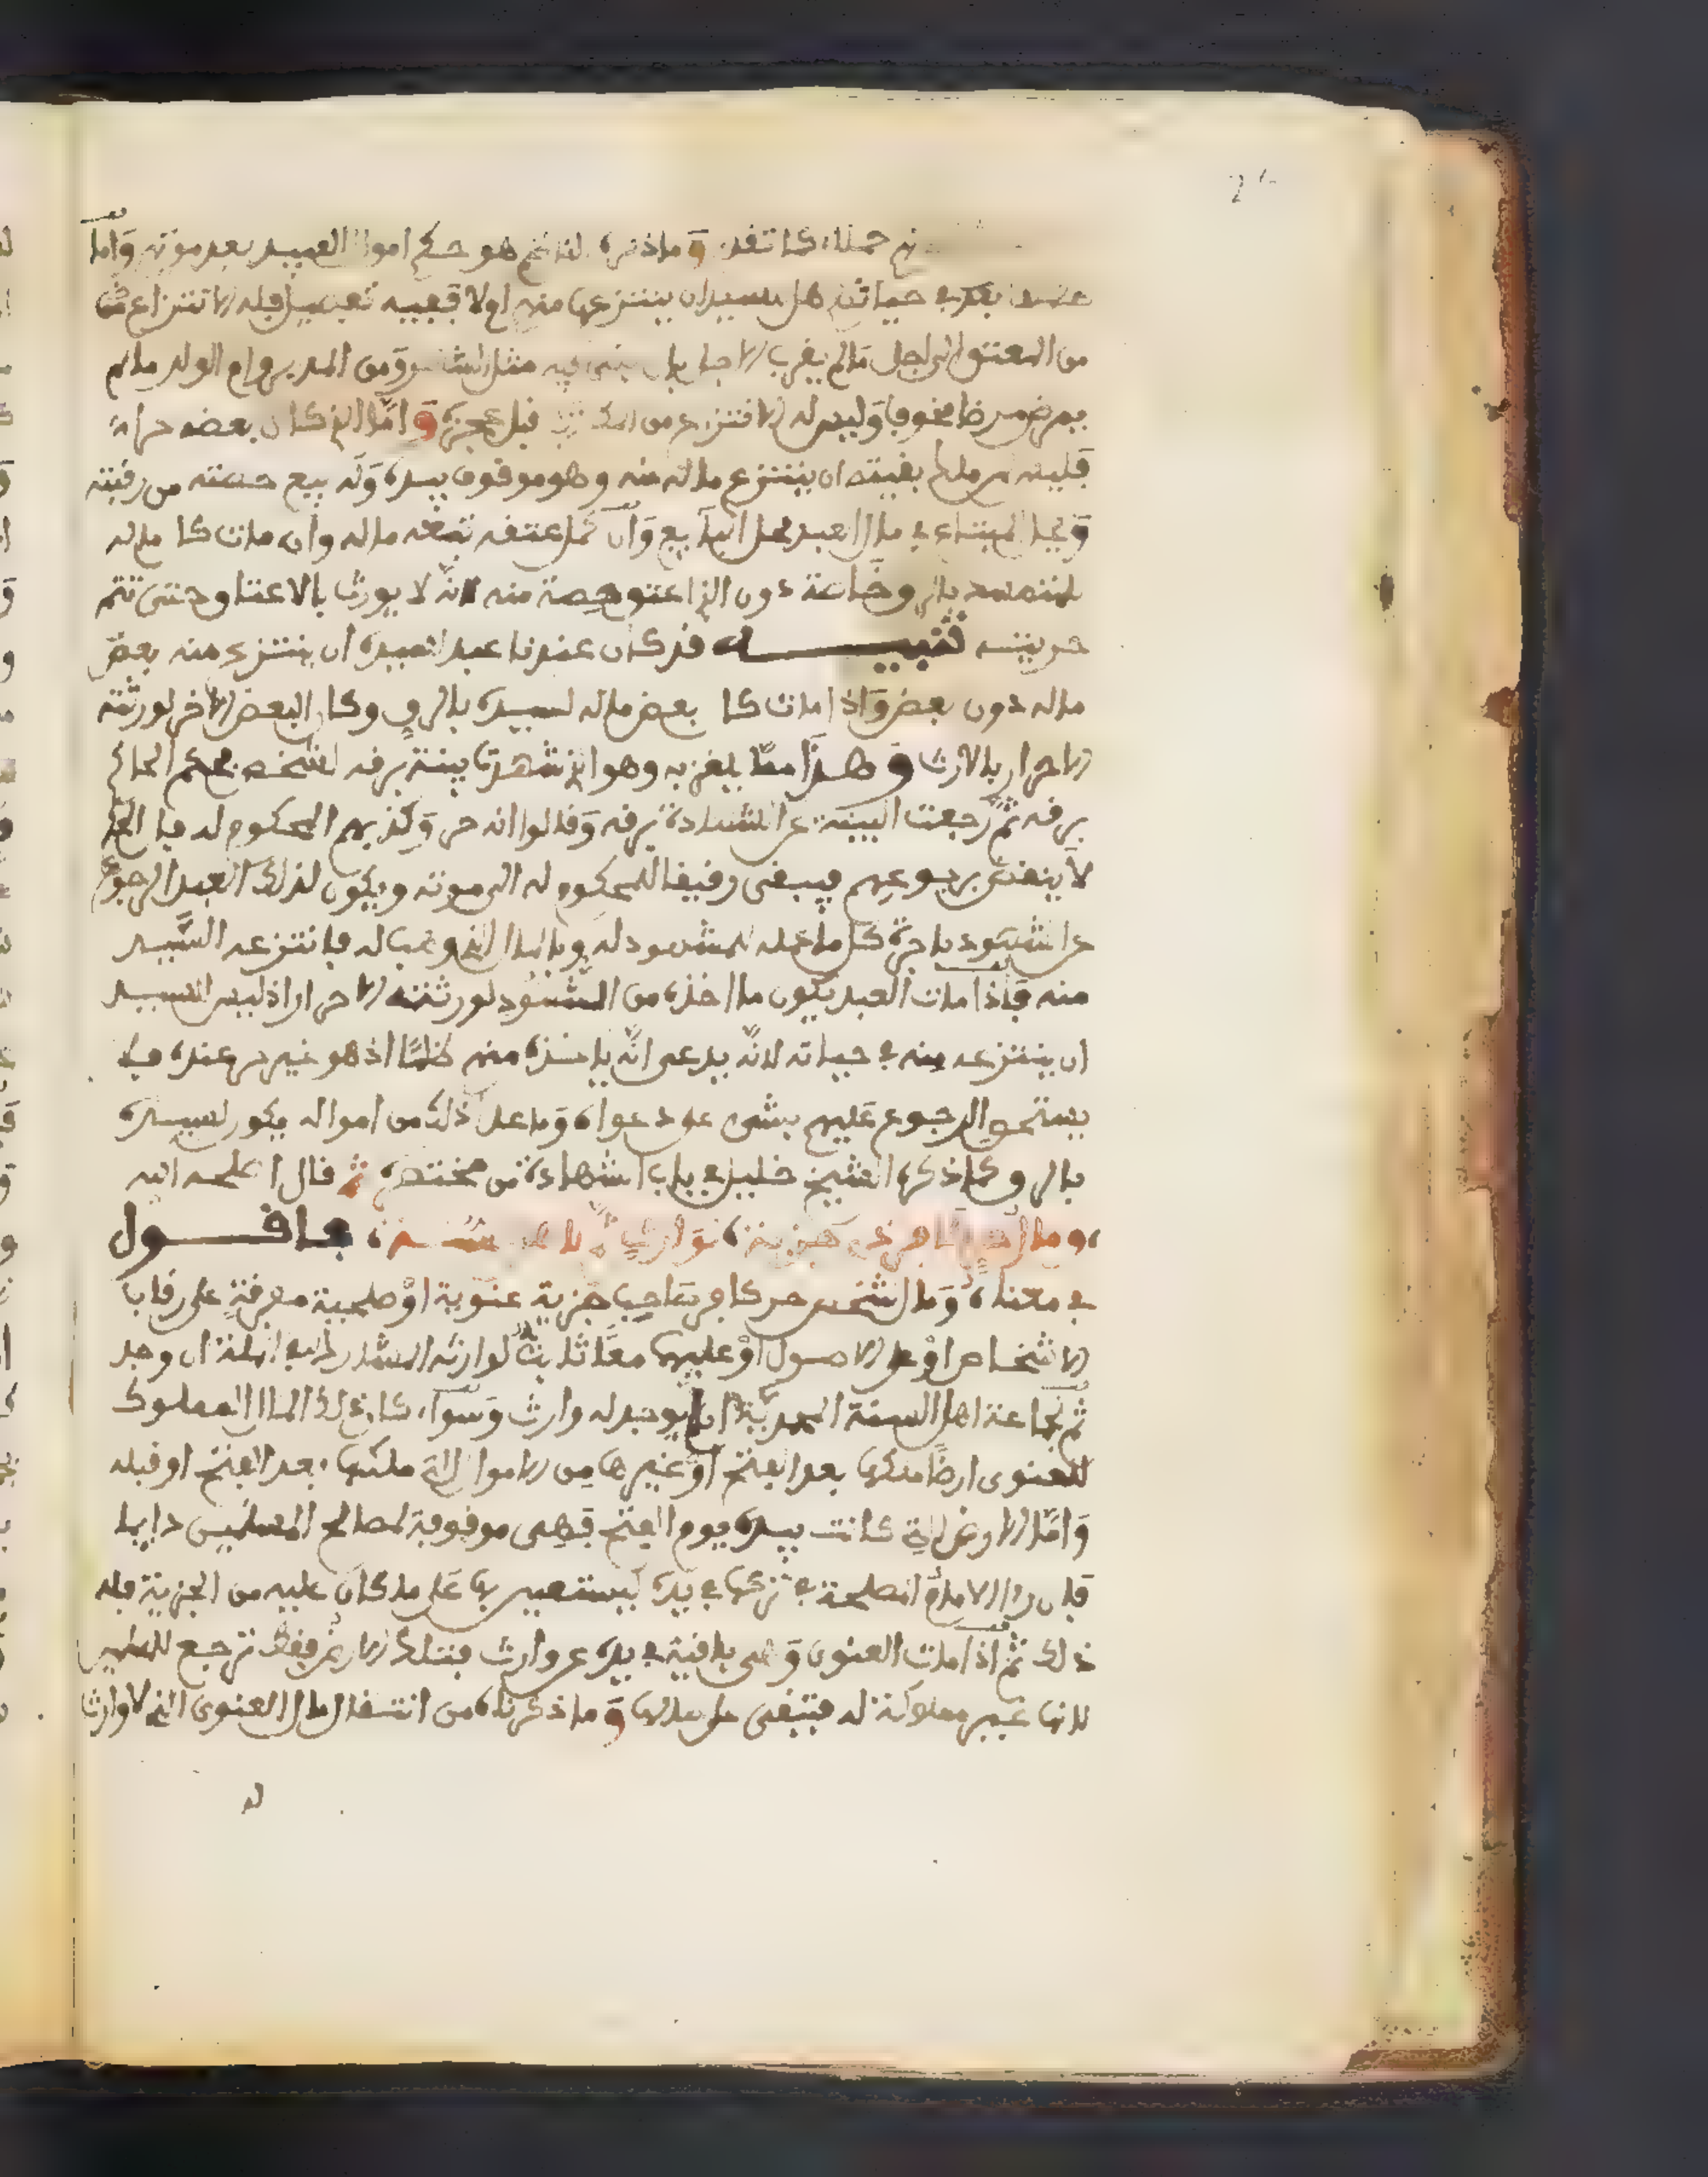 كما تقد وما ذكره الناظم هو حكم اموال العبيد بعد موته واما
في حياته هل للسيد ان ينتزعها منهم او لا ففيه تفصيل فله الانتزاع
من المعتق الى اجل ما لم يقرب الاجل مثل الشهر ومن المدبر وام الولد ما لم
يمرض مرضا مخوفا وليس له الانتزاع من المكاتب قبل عجزه واما الذي كان بعضه حرا
فليس لمن ملك بقيته ان ينتزع ماله منه وهو موقوف بيده وله بيع حصته من رقبته
ويحل المبتاع في مال العبد محل البايع وان كمل عتقه تبعه ماله وان مات كان ماله
بالرق خاصة دون الذي اعتق حصة منه لانه لا يورث بالاعتاق حتى تتم
حريته تنبيه قد كان عندنا عبد لسيده ان ينتزع منه بعض
ماله دون بعض واذا مات كان بعض ماله لسيده بالرق وكان البعض الاخر لورثته
الاحرار بالارث وهذا مما يلغز به وهو الذي شهدت بينة برقه لشخص فحكم الحاكم
برقه ثم رجعت البينة عن الشهادة برقه وقالوا انه حر وكذبهم المحكوم له فان الحكم
لا ينقض برجوعهم فيبقى رقيقا للمحكوم له الى موته ويكون لذلك العبد الرجوع
على الشهود باجرة كل ما عمله للمشهود له وبالمال الذي وهب له فانتزعه السيد
منه فاذا مات العبد يكون ما اخذه من الشهود لورثته الاحرار اذ ليس للسيد
ان ينتزعه منه في حياته لانه يدعي انه ياخذه منهم ظلما اذ هو غير حر عنده فلا
يستحق الرجوع عليهم بشيء على دعواه وما عدا ذلك من امواله يكون لسيده
بالرق كما ذكره الشيخ خليل في باب الشهادة من مختصره ثم قال رحمه الله
فاقول
في معناه ومال شخص حر كافر صاحب جزية عنوية او صلحية مفرقة على رقاب
الاشخاص او على الاصول او عليهما معا ثابت لوارثه المشارك له في الملة ان وجد
ثم لجماعة اهل السنة المحمدية ان لم يوجد له وارث وسواء كان ذلك المال المملوك
للعنوي ارضا ملكها بعد الفتح او غيرها من الاموال التي ملكها بعد الفتح او قبله
واما الارض التي كانت بيده يوم الفتح فهي موقوفة لمصالح المسلمين دايما
فان راى الامام المصلحة في تركها في يده ليستعين بها على ما كان عليه من الجزية فله
ذلك ثم اذا مات العنوي وهي باقية في يده عن وارث فتلك الارض فقط ترجع للمسلمين
لانها غير مملوكة له فتبقى على حالها وما ذكرناه من انتقال مال العنوي الذي لا وارث
له